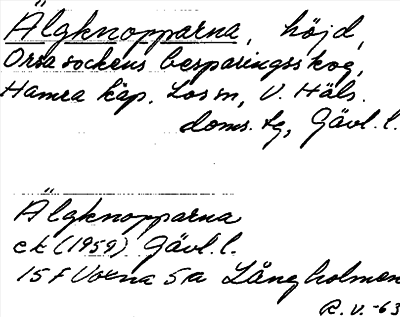 Älgknopparna, höjd,
Orsa sockens besparingsskog,
Hamra kap. Los sn, V. Häls.
doms. tg, Gävl. l.
Älgknopparna
ek (1959) Gävl. l.
15 F Voxna 5a Långholmen
R. V. -63